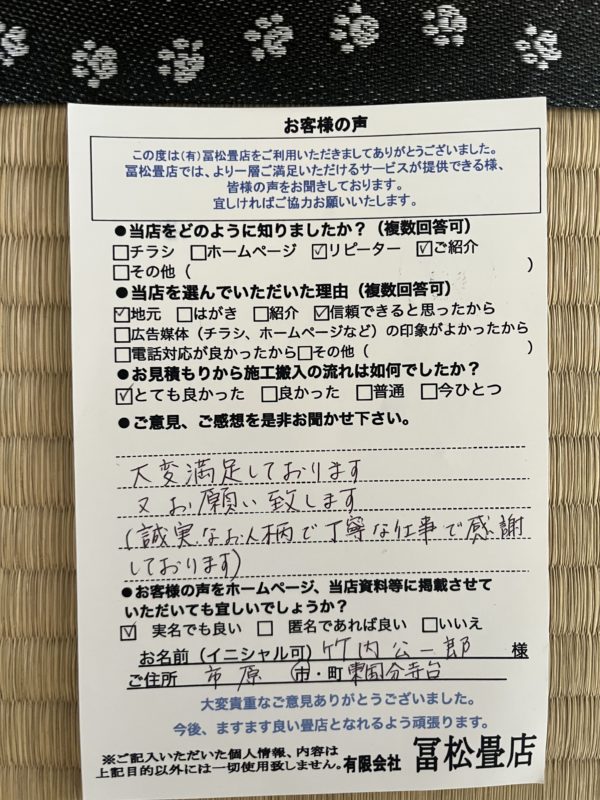 お客様の声
この度は(有)冨松畳店をご利用いただきましてありがとうございました。
冨松畳店では、より一層ご満足いただけるサービスが提供できる様、
皆様の声をお聞きしております。
宜しければご協力お願いいたします。
●当店をどのように知りましたか？（複数回答可）
□チラシ □ホームページ ☑リピーター ☑ご紹介
□その他（ ）
●当店を選んでいただいた理由（複数回答可）
☑地元 □はがき □紹介 ☑信頼できると思ったから
□広告媒体（チラシ、ホームページなど）の印象がよかったから
□電話対応が良かったから□その他（ ）
●お見積もりから施工搬入の流れは如何でしたか？
☑とても良かった □良かった □普通 □今ひとつ
●ご意見、ご感想を是非お聞かせ下さい。
大変満足しております
又お願い致します
(誠実なお人柄で丁寧な仕事で感謝
しております)
●お客様の声をホームページ、当店資料等に掲載させて
いただいても宜しいでしょうか？
☑ 実名でも良い □ 匿名であれば良い □いいえ
お名前（イニシャル可）竹内公一郎 様
ご住所 市原 市・町 東国分寺台
大変貴重なご意見ありがとうございました。
今後、ますます良い畳店となれるよう頑張ります。
※ご記入いただいた個人情報、内容は
上記目的以外には一切使用致しません。有限会社 冨松畳店